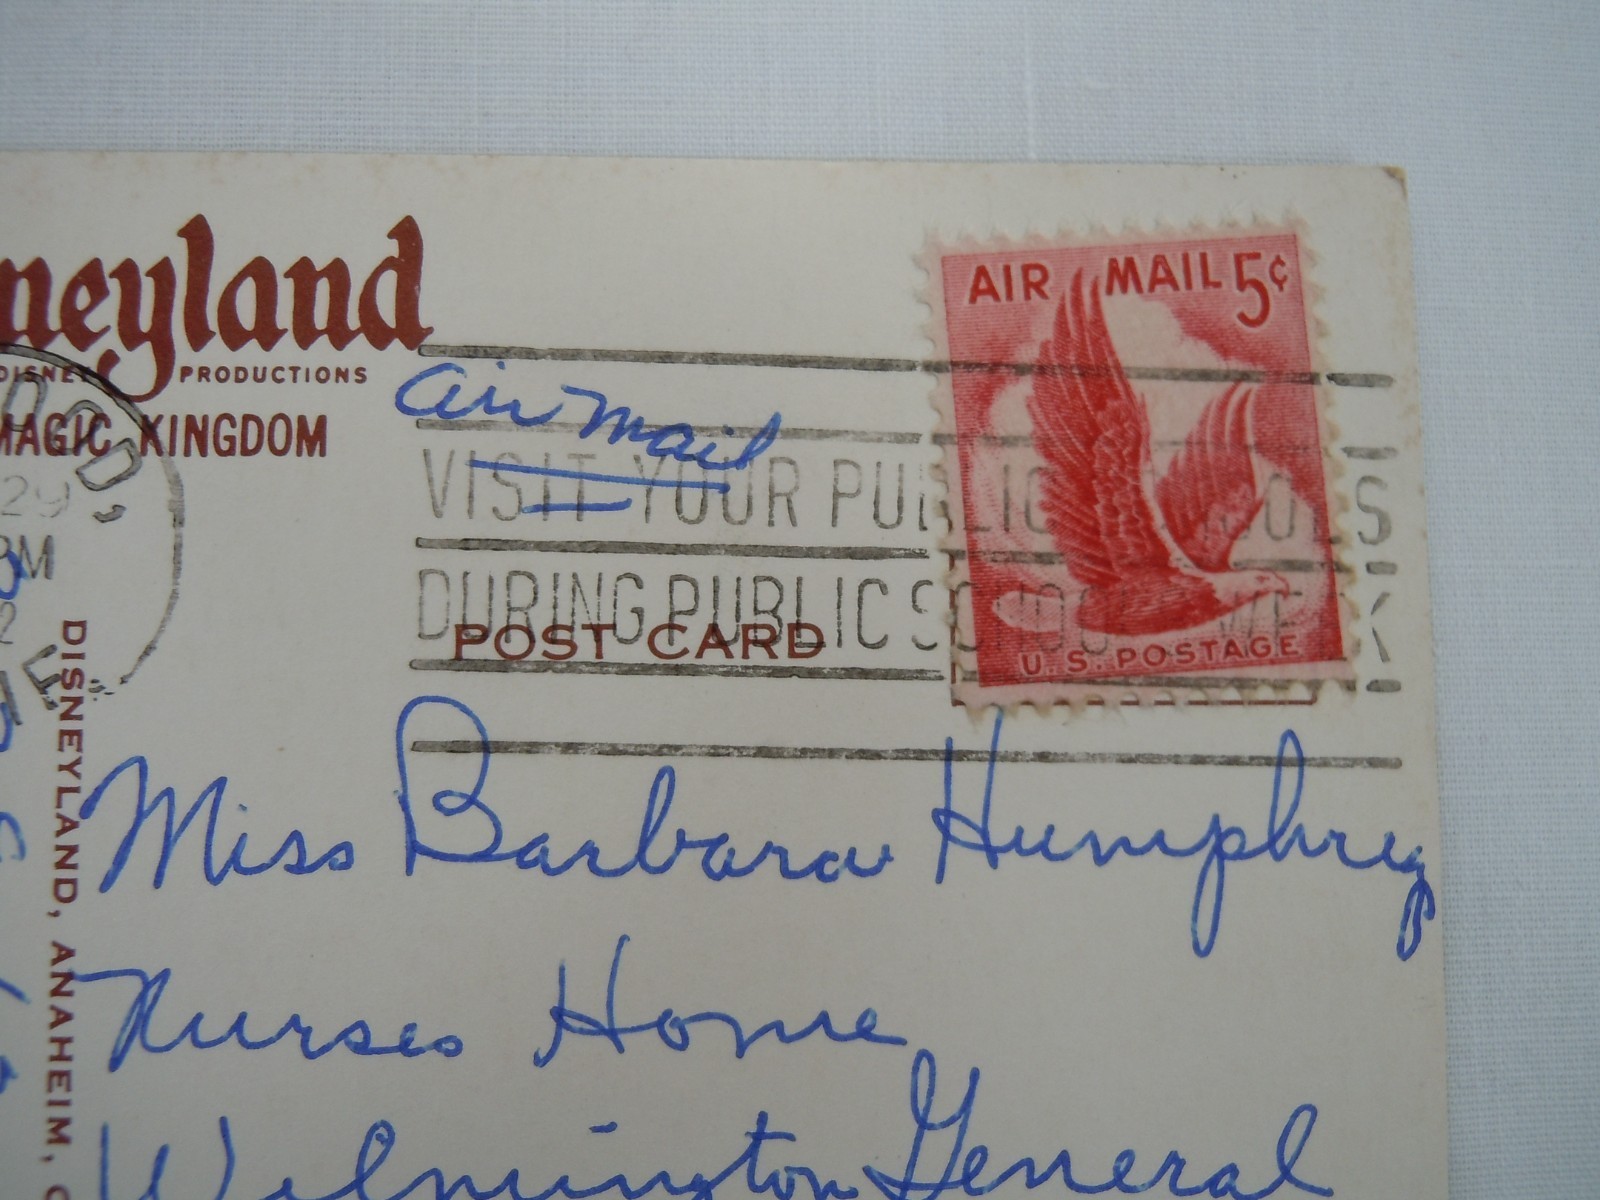 neyland
DISNEY PRODUCTIONS
MAGIC KINGDOM
AIR MAIL 5¢
U.S. POSTAGE
Air Mail
VISIT YOUR PUBLIC SCHOOLS
DURING PUBLIC SCHOOLS WEEK
POST CARD
29
PM
DISNEYLAND, ANAHEIM, C
Miss Barbara Humphrey
Nurses Home
Wilmington General